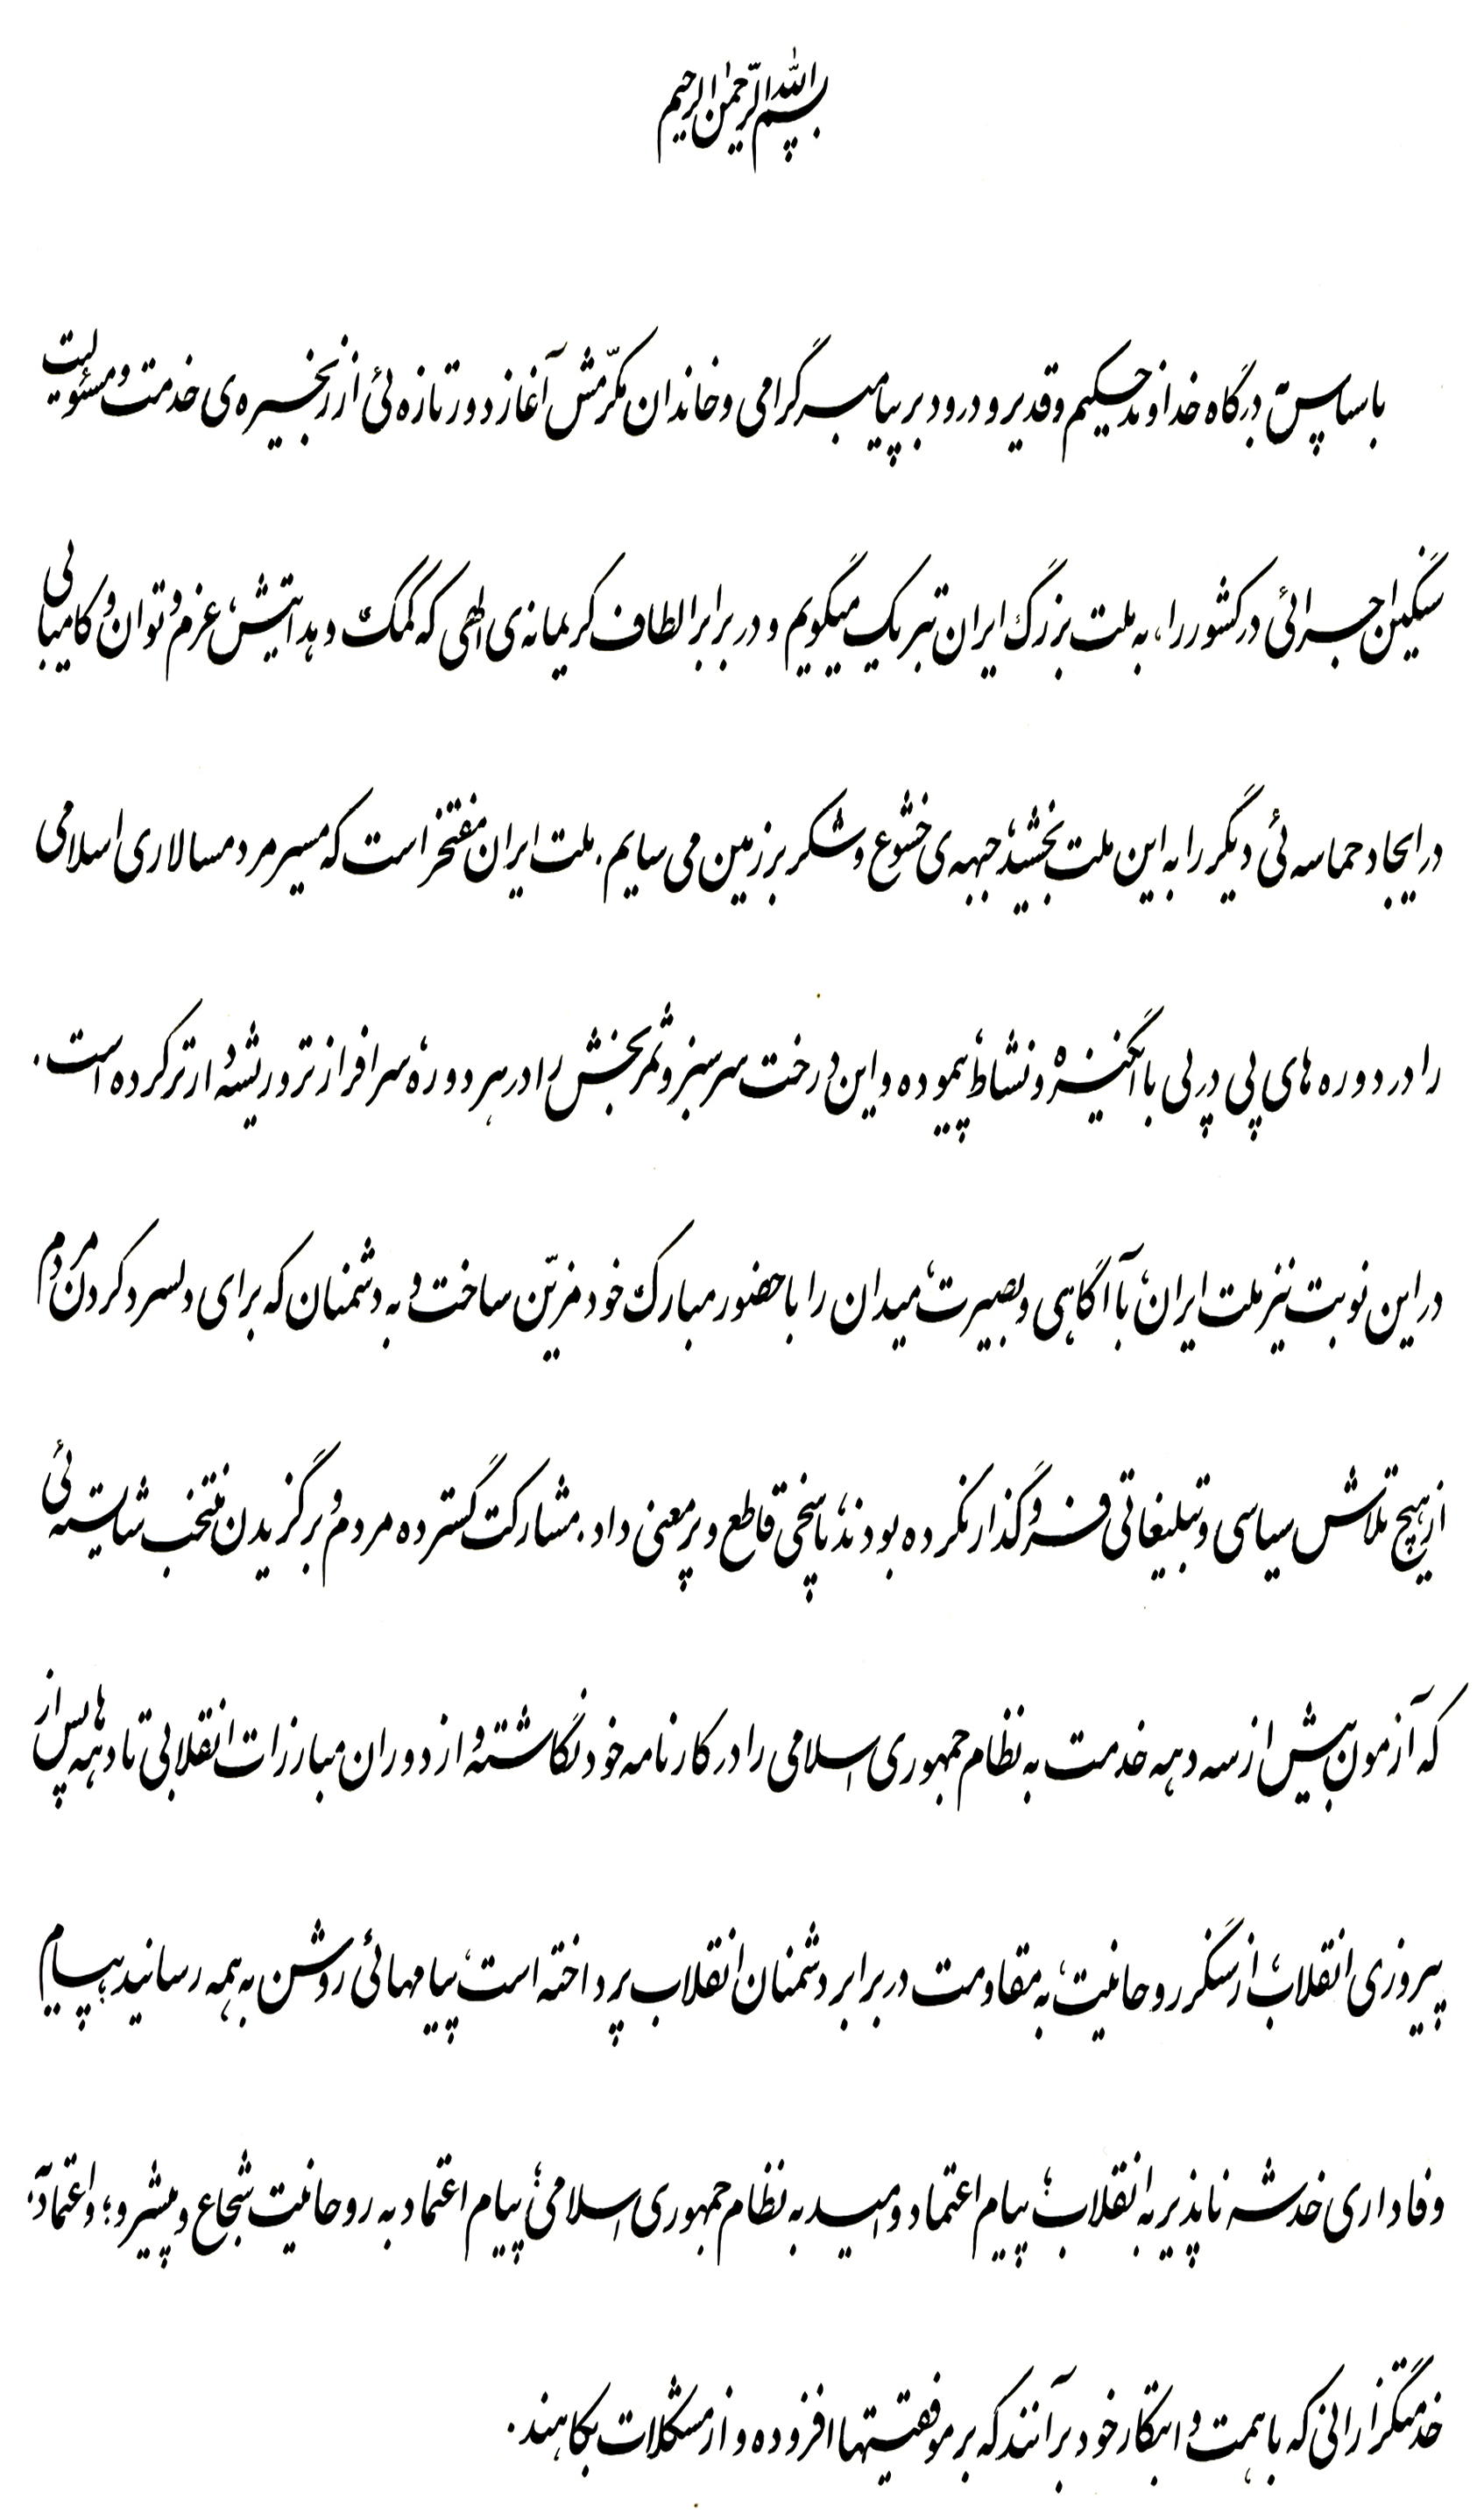 بسم الله الرحمن الرحیم
با سپاس به درگاه خداوند حکیم و قدیر و درود بر پیامبر گرامی و خاندان مکرّمش آغاز دور تازه‌ئی از زنجیره‌ی خدمت و مسئولیت
سنگین اجرائی در کشور را، به ملت بزرگ ایران تبریک میگویم و در برابر الطاف کریمانه‌ی الهی که کمک و هدایتش، عزم و توان و کامیابی
در ایجاد حماسه‌ئی دیگر را به این ملت بخشید، جبهه‌ی خشوع و شکر بر زمین می‌سایم. ملت ایران مفتخر است که مسیر مردمسالاری اسلامی
را در دوره‌های پی در پی با انگیزه و نشاط، پیموده و این درخت سرسبز و ثمربخش را در هر دوره، سرافرازتر و ریشه‌دارتر کرده است.
در این نوبت نیز ملت ایران، با آگاهی و بصیرت، میدان را با حضور مبارک خود مزیّن ساخت و به دشمنان که برای دلسرد کردن مردم
از هیچ تلاش سیاسی و تبلیغاتی فروگذار نکرده بودند، پاسخی قاطع و پرمعنی داد. مشارکت گسترده مردم و برگزیدن منتخب شایسته‌ئی
که آزمون بیش از سه دهه خدمت به نظام جمهوری اسلامی را در کارنامه خود نگاشته و از دوران مبارزات انقلابی تا دهه‌ها پس از
پیروزی انقلاب، از سنگر روحانیت، به مقاومت در برابر دشمنان انقلاب پرداخته است، پیامهائی روشن به همه رسانید، پیام
وفاداری خدشه ناپذیر به انقلاب؛ پیام اعتماد و امید به نظام جمهوری اسلامی؛ پیام اعتماد به روحانیت شجاع و پیشرو؛ و اعتماد به
خدمتگزارانی که با همت و ابتکار خود برآنند که بر موفقیتها افزوده و از مشکلات بکاهند.